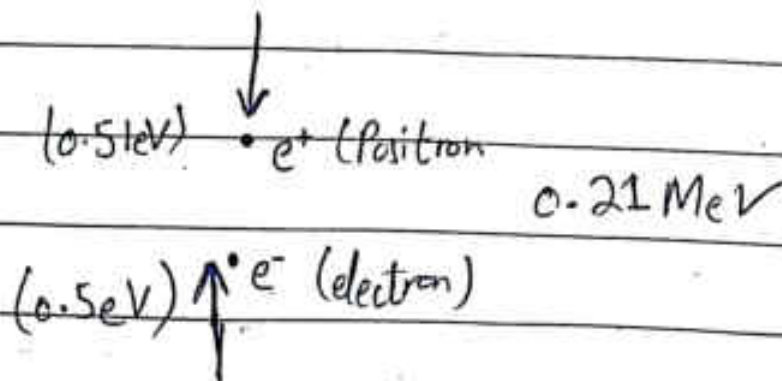 (0.51eV) • e⁺ (Positron
0.21 MeV
(0.5eV) • e⁻ (electron)